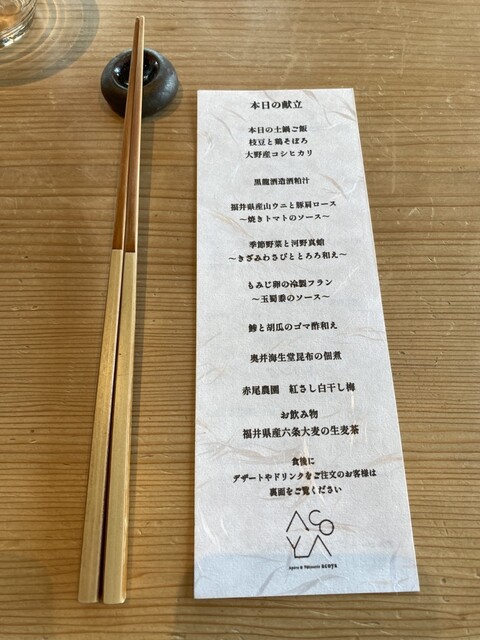 本日の献立
本日の土鍋ご飯
枝豆と鶏そぼろ
大野産コシヒカリ
黒龍酒造酒粕汁
福井県産山ウニと豚肩ロース
～焼きトマトのソース～
季節野菜と河野真蛸
～きざみわさびととろろ和え～
もみじ卵の冷製フラン
～玉蜀黍のソース～
鯵と胡瓜のゴマ酢和え
奥井海生堂昆布の佃煮
赤尾農園 紅さし白干し梅
お飲み物
福井県産六条大麦の生麦茶
食後に
デザートやドリンクをご注文のお客様は
裏面をご覧ください
ASO
YA